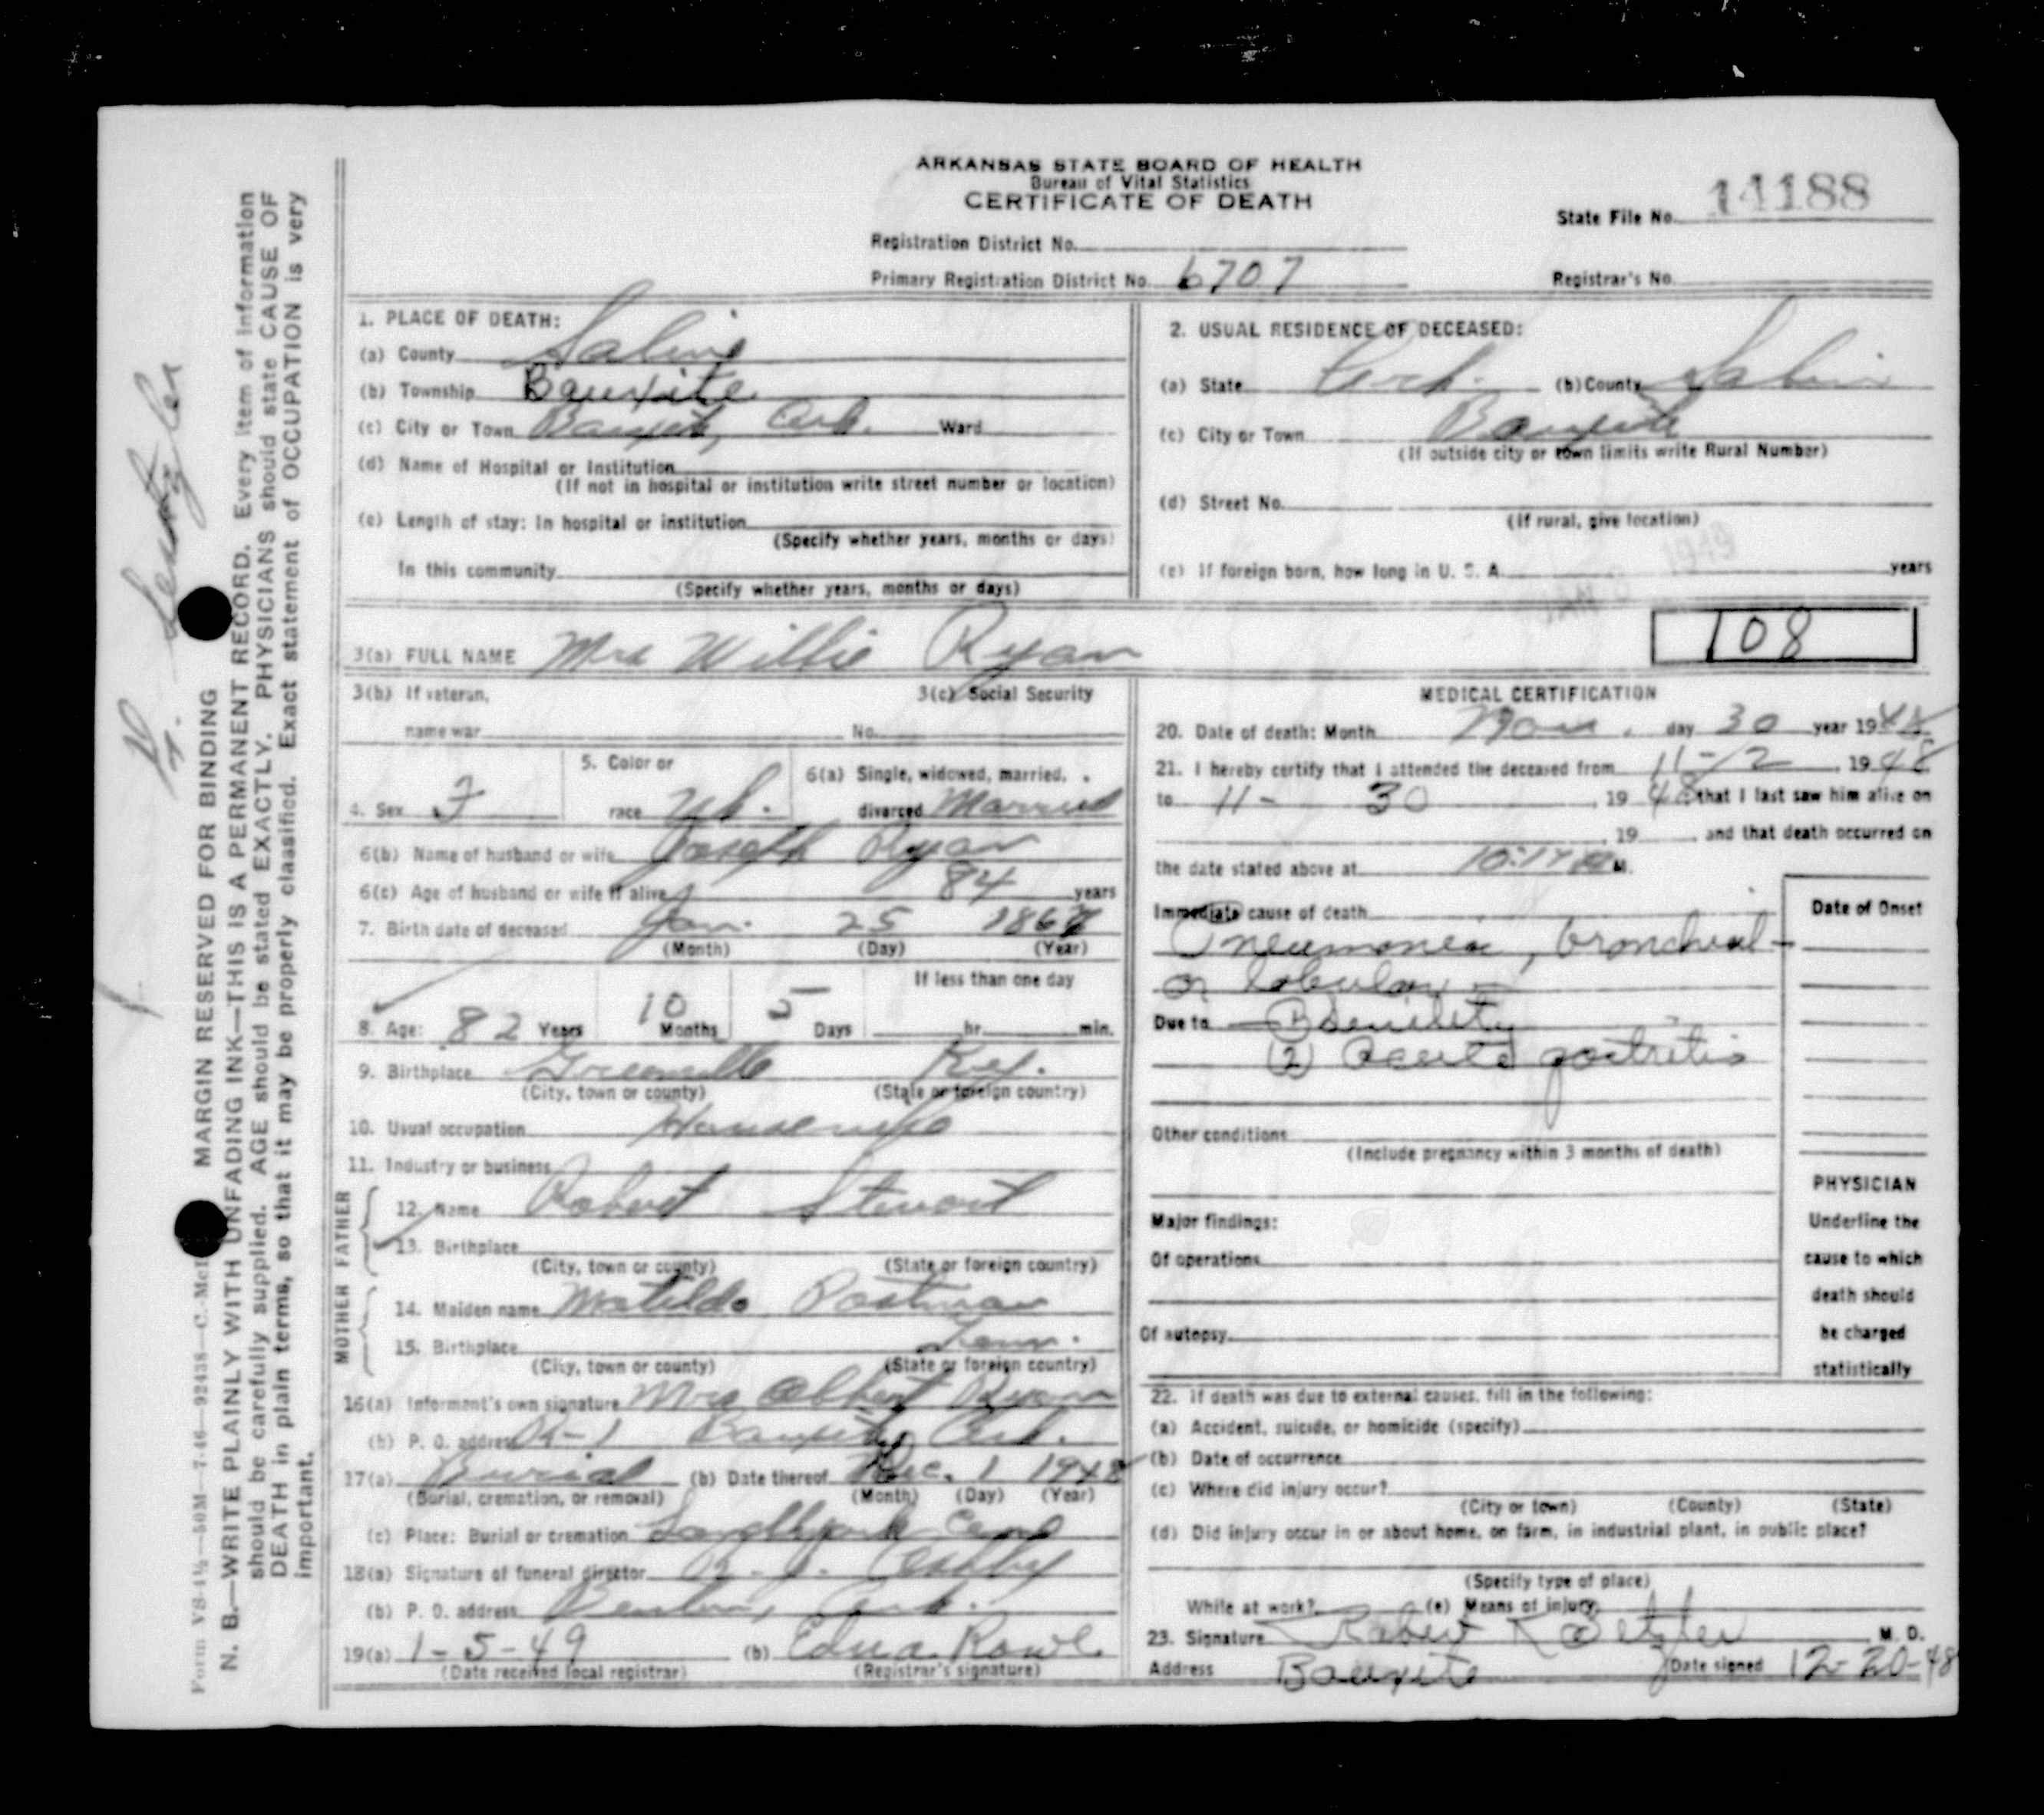 ARKANSAS STATE BOARD OF HEALTH
Bureau of Vital Statistics
CERTIFICATE OF DEATH
State File No. 14188
Registration District No.
Primary Registration District No. 6707
Registrar's No.
MARGIN RESERVED FOR BINDING
N. B.—WRITE PLAINLY WITH UNFADING INK—THIS IS A PERMANENT RECORD. Every item of information
should be carefully supplied. AGE should be stated EXACTLY. PHYSICIANS should state CAUSE OF
DEATH in plain terms, so that it may be properly classified. Exact statement of OCCUPATION is very
important.
1. PLACE OF DEATH:
(a) County Saline
(b) Township Bauxite
(c) City or Town Bauxite, Ark. Ward
(d) Name of Hospital or Institution
(If not in hospital or institution write street number or location)
(e) Length of stay: In hospital or institution
(Specify whether years, months or days)
In this community
(Specify whether years, months or days)
2. USUAL RESIDENCE OF DECEASED:
(a) State Ark. (b) County Saline
(c) City or Town Bauxite
(If outside city or town limits write Rural Number)
(d) Street No.
(If rural, give location)
(e) If foreign born, how long in U. S. A. years
1949
3(a) FULL NAME Mrs Willie Ryan
108
3(b) If veteran,
name war
3(c) Social Security
No.
4. Sex F
5. Color or
race Wh.
6(a) Single, widowed, married,
divorced Married
6(b) Name of husband or wife Joseph Ryan
6(c) Age of husband or wife if alive 84 years
7. Birth date of deceased Jan. 25
(Month) (Day) (Year)
8. Age: 82 Years 10 Months 5 Days
If less than one day
hr. min.
9. Birthplace Greenville Ky.
(City, town or county) (State or foreign country)
10. Usual occupation Housewife
11. Industry or business
FATHER
12. Name Robert Stewart
13. Birthplace
(City, town or county) (State or foreign country)
MOTHER
14. Maiden name Matilda
15. Birthplace Tenn.
(City, town or county) (State or foreign country)
16(a) Informant's own signature Mrs Albert Ryan
(b) P. O. address R-1 Bauxite, Ark.
17(a) Burial (b) Date thereof Dec. 1 1948
(Burial, cremation, or removal) (Month) (Day) (Year)
(c) Place: Burial or cremation
18(a) Signature of funeral director Ashby
(b) P. O. address Benton, Ark.
19(a) 1-5-49 (b) Edna Rowe
(Date received local registrar) (Registrar's signature)
MEDICAL CERTIFICATION
20. Date of death: Month Nov. day 30 year 1948
21. I hereby certify that I attended the deceased from 11-2 1948
to 11-30 1948 that I last saw him alive on
19 and that death occurred on
the date stated above at M.
Immediate cause of death
Pneumonia, bronchial
or lobular
Due to (1) Senility
(2) Acute gastritis
Date of Onset
Other conditions
(Include pregnancy within 3 months of death)
Major findings:
Of operations
Of autopsy
PHYSICIAN
Underline the
cause to which
death should
be charged
statistically
22. If death was due to external causes, fill in the following:
(a) Accident, suicide, or homicide (specify)
(b) Date of occurrence
(c) Where did injury occur?
(City or town) (County) (State)
(d) Did injury occur in or about home, on farm, in industrial plant, in public place?
(Specify type of place)
While at work? (e) Means of injury
23. Signature M. D.
Address Bauxite Date signed 12-20-48